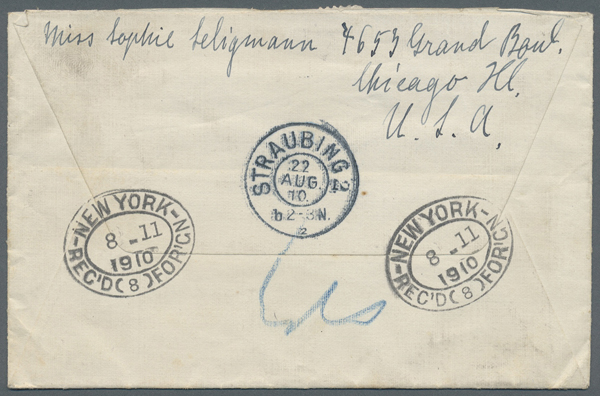 Miss Sophie Seligmann 4653 Grand Boul.
Chicago Ill.
U. S. A.
STRAUBING 2.
22
AUG.
10.
b 2-3N.
2
-NEW YORK-N-
8 - 11
1910
REC'D (8) FOR'GN
-NEW YORK-N-
8 - 11
1910
REC'D (8) FOR'GN